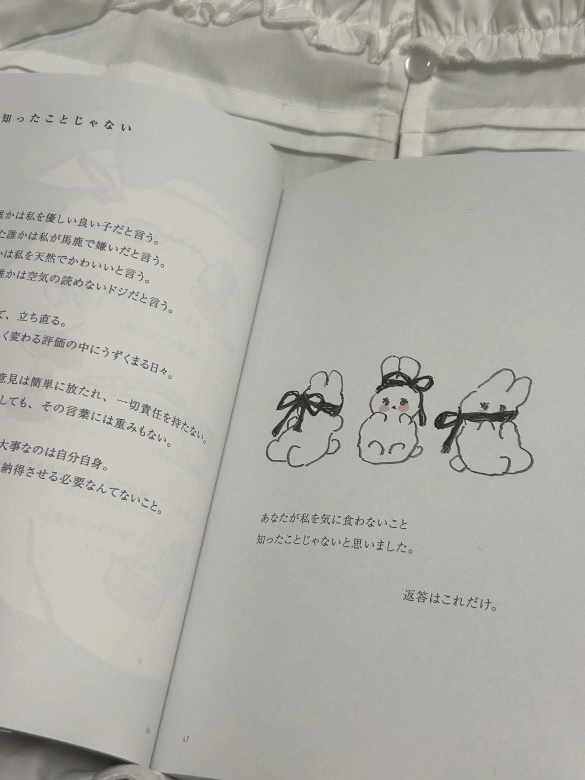 知ったことじゃない
誰かは私を優しい良い子だと言う。
た誰かは私が馬鹿で嫌いだと言う。
は私を天然でかわいいと言う。
誰かは空気の読めないドジだと言う。
て、立ち直る。
く変わる評価の中にうずくまる日々。
意見は簡単に放たれ、一切責任を持たない。
しても、その言葉には重みもない。
大事なのは自分自身。
納得させる必要なんてないこと。
あなたが私を気に食わないこと
知ったことじゃないと思いました。
返答はこれだけ。
47